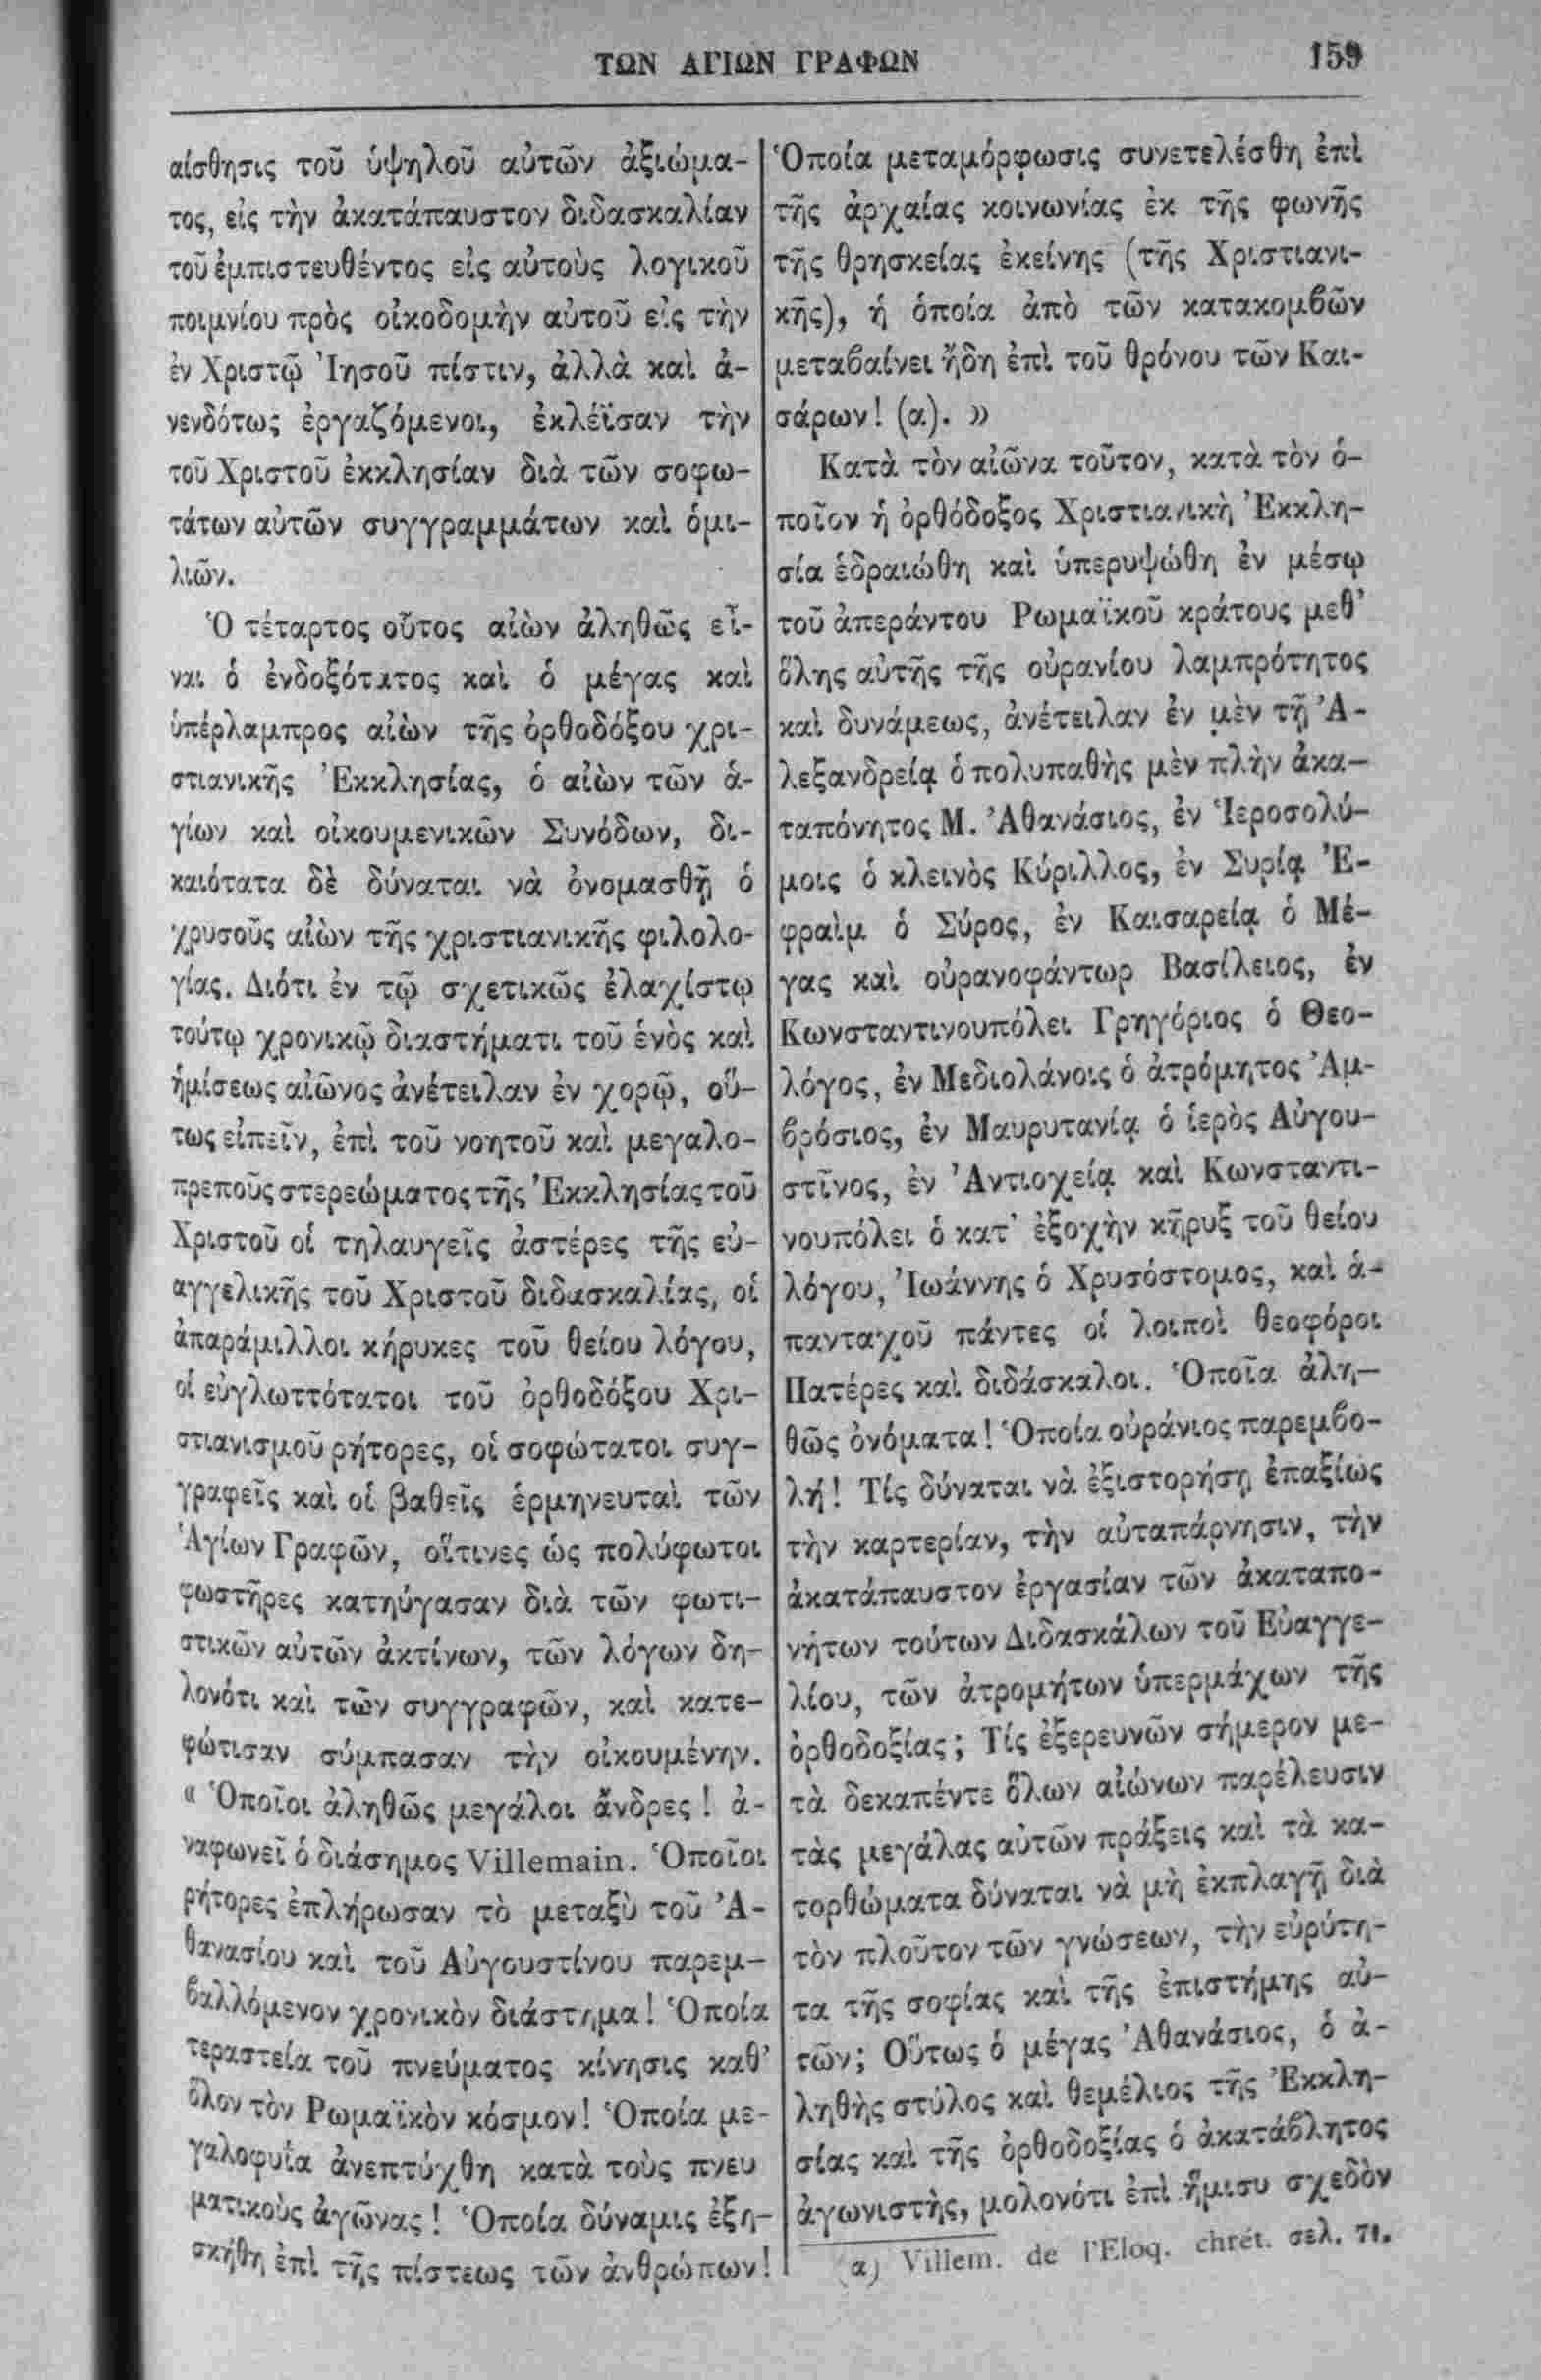 ΤΩΝ ΑΓΙΩΝ ΓΡΑΦΩΝ
159
αἴσθησις τοῦ ὑψηλοῦ αὐτῶν ἀξιώμα-
τος, εἰς τὴν ἀκατάπαυστον διδασκαλίαν
τοῦ ἐμπιστευθέντος εἰς αὐτοὺς λογικοῦ
ποιμνίου πρὸς οἰκοδομὴν αὐτοῦ εἰς τὴν
ἐν Χριστῷ Ἰησοῦ πίστιν, ἀλλὰ καὶ ἀ-
νενδότως ἐργαζόμενοι, ἐκλέϊσαν τὴν
τοῦ Χριστοῦ ἐκκλησίαν διὰ τῶν σοφω-
τάτων αὐτῶν συγγραμμάτων καὶ ὁμι-
λιῶν.
Ὁ τέταρτος οὗτος αἰὼν ἀληθῶς εἶ-
ναι ὁ ἐνδοξότατος καὶ ὁ μέγας καὶ
ὑπέρλαμπρος αἰὼν τῆς ὀρθοδόξου χρι-
στιανικῆς Ἐκκλησίας, ὁ αἰὼν τῶν ἁ-
γίων καὶ οἰκουμενικῶν Συνόδων, δι-
καιότατα δὲ δύναται νὰ ὀνομασθῇ ὁ
χρυσοῦς αἰὼν τῆς χριστιανικῆς φιλολο-
γίας. Διότι ἐν τῷ σχετικῶς ἐλαχίστῳ
τούτῳ χρονικῷ διαστήματι τοῦ ἑνὸς καὶ
ἡμίσεως αἰῶνος ἀνέτειλαν ἐν χορῷ, οὕ-
τως εἰπεῖν, ἐπὶ τοῦ νοητοῦ καὶ μεγαλο-
πρεποῦς στερεώματος τῆς Ἐκκλησίας τοῦ
Χριστοῦ οἱ τηλαυγεῖς ἀστέρες τῆς εὐ-
αγγελικῆς τοῦ Χριστοῦ διδασκαλίας, οἱ
ἀπαράμιλλοι κήρυκες τοῦ θείου λόγου,
οἱ εὐγλωττότατοι τοῦ ὀρθοδόξου Χρι-
στιανισμοῦ ρήτορες, οἱ σοφώτατοι συγ-
γραφεῖς καὶ οἱ βαθεῖς ἑρμηνευταὶ τῶν
Ἁγίων Γραφῶν, οἵτινες ὡς πολύφωτοι
φωστῆρες κατηύγασαν διὰ τῶν φωτι-
στικῶν αὐτῶν ἀκτίνων, τῶν λόγων δη-
λονότι καὶ τῶν συγγραφῶν, καὶ κατε-
φώτισαν σύμπασαν τὴν οἰκουμένην.
« Ὁποῖοι ἀληθῶς μεγάλοι ἄνδρες ! ἀ-
ναφωνεῖ ὁ διάσημος Villemain. Ὁποῖοι
ρήτορες ἐπλήρωσαν τὸ μεταξὺ τοῦ Ἀ-
θανασίου καὶ τοῦ Αὐγουστίνου παρεμ-
βαλλόμενον χρονικὸν διάστημα! Ὁποία
τεραστεία τοῦ πνεύματος κίνησις καθ’
ὅλον τὸν Ρωμαϊκὸν κόσμον! Ὁποία με-
γαλοφυΐα ἀνεπτύχθη κατὰ τοὺς πνευ
ματικοὺς ἀγῶνας! Ὁποία δύναμις ἐξη-
σκήθη ἐπὶ τῆς πίστεως τῶν ἀνθρώπων!
Ὁποία μεταμόρφωσις συνετελέσθη ἐπὶ
τῆς ἀρχαίας κοινωνίας ἐκ τῆς φωνῆς
τῆς θρησκείας ἐκείνης (τῆς Χριστιανι-
κῆς), ἡ ὁποία ἀπὸ τῶν κατακομβῶν
μεταβαίνει ἤδη ἐπὶ τοῦ θρόνου τῶν Και-
σάρων! (α). »
Κατὰ τὸν αἰῶνα τοῦτον, κατὰ τὸν ὁ-
ποῖον ἡ ὀρθόδοξος Χριστιανικὴ Ἐκκλη-
σία ἑδραιώθη καὶ ὑπερυψώθη ἐν μέσῳ
τοῦ ἀπεράντου Ρωμαϊκοῦ κράτους μεθ’
ὅλης αὐτῆς τῆς οὐρανίου λαμπρότητος
καὶ δυνάμεως, ἀνέτειλαν ἐν μὲν τῇ Ἀ-
λεξανδρείᾳ ὁ πολυπαθὴς μὲν πλὴν ἀκα-
ταπόνητος Μ. Ἀθανάσιος, ἐν Ἱεροσολύ-
μοις ὁ κλεινὸς Κύριλλος, ἐν Συρίᾳ Ἐ-
φραὶμ ὁ Σύρος, ἐν Καισαρείᾳ ὁ Μέ-
γας καὶ οὐρανοφάντωρ Βασίλειος, ἐν
Κωνσταντινουπόλει Γρηγόριος ὁ Θεο-
λόγος, ἐν Μεδιολάνοις ὁ ἀτρόμητος Ἀμ-
βρόσιος, ἐν Μαυρυτανίᾳ ὁ ἱερὸς Αὐγου-
στῖνος, ἐν Ἀντιοχείᾳ καὶ Κωνσταντι-
νουπόλει ὁ κατ’ ἐξοχὴν κῆρυξ τοῦ θείου
λόγου, Ἰωάννης ὁ Χρυσόστομος, καὶ ἁ-
πανταχοῦ πάντες οἱ λοιποὶ θεοφόροι
Πατέρες καὶ διδάσκαλοι. Ὁποῖα ἀλη-
θῶς ὀνόματα! Ὁποία οὐράνιος παρεμβο-
λή! Τίς δύναται νὰ ἐξιστορήσῃ ἐπαξίως
τὴν καρτερίαν, τὴν αὐταπάρνησιν, τὴν
ἀκατάπαυστον ἐργασίαν τῶν ἀκαταπο-
νήτων τούτων Διδασκάλων τοῦ Εὐαγγε-
λίου, τῶν ἀτρομήτων ὑπερμάχων τῆς
ὀρθοδοξίας; Τίς ἐξερευνῶν σήμερον με-
τὰ δεκαπέντε ὅλων αἰώνων παρέλευσιν
τὰς μεγάλας αὐτῶν πράξεις καὶ τὰ κα-
τορθώματα δύναται νὰ μὴ ἐκπλαγῇ διὰ
τὸν πλοῦτον τῶν γνώσεων, τὴν εὐρύτη-
τα τῆς σοφίας καὶ τῆς ἐπιστήμης αὐ-
τῶν; Οὕτως ὁ μέγας Ἀθανάσιος, ὁ ἀ-
ληθὴς στύλος καὶ θεμέλιος τῆς Ἐκκλη-
σίας καὶ τῆς ὀρθοδοξίας ὁ ἀκατάβλητος
ἀγωνιστὴς, μολονότι ἐπὶ ἥμισυ σχεδὸν
(α) Villem. de l'Eloq. chrét. σελ. 71.